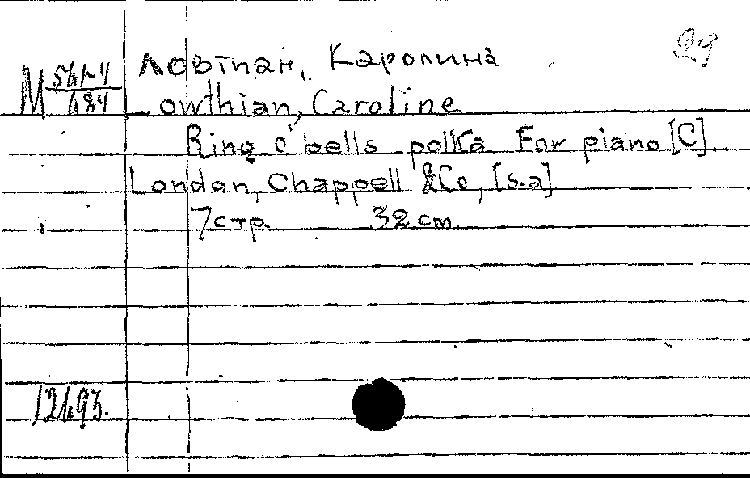 29
Ловтиан, Каролина
M 561-4/684
Lowthian, Caroline
Ring o' bells polka For piano [C].
London, Chappell & Co, [s.a]
7 стр. 32 cm
12693.